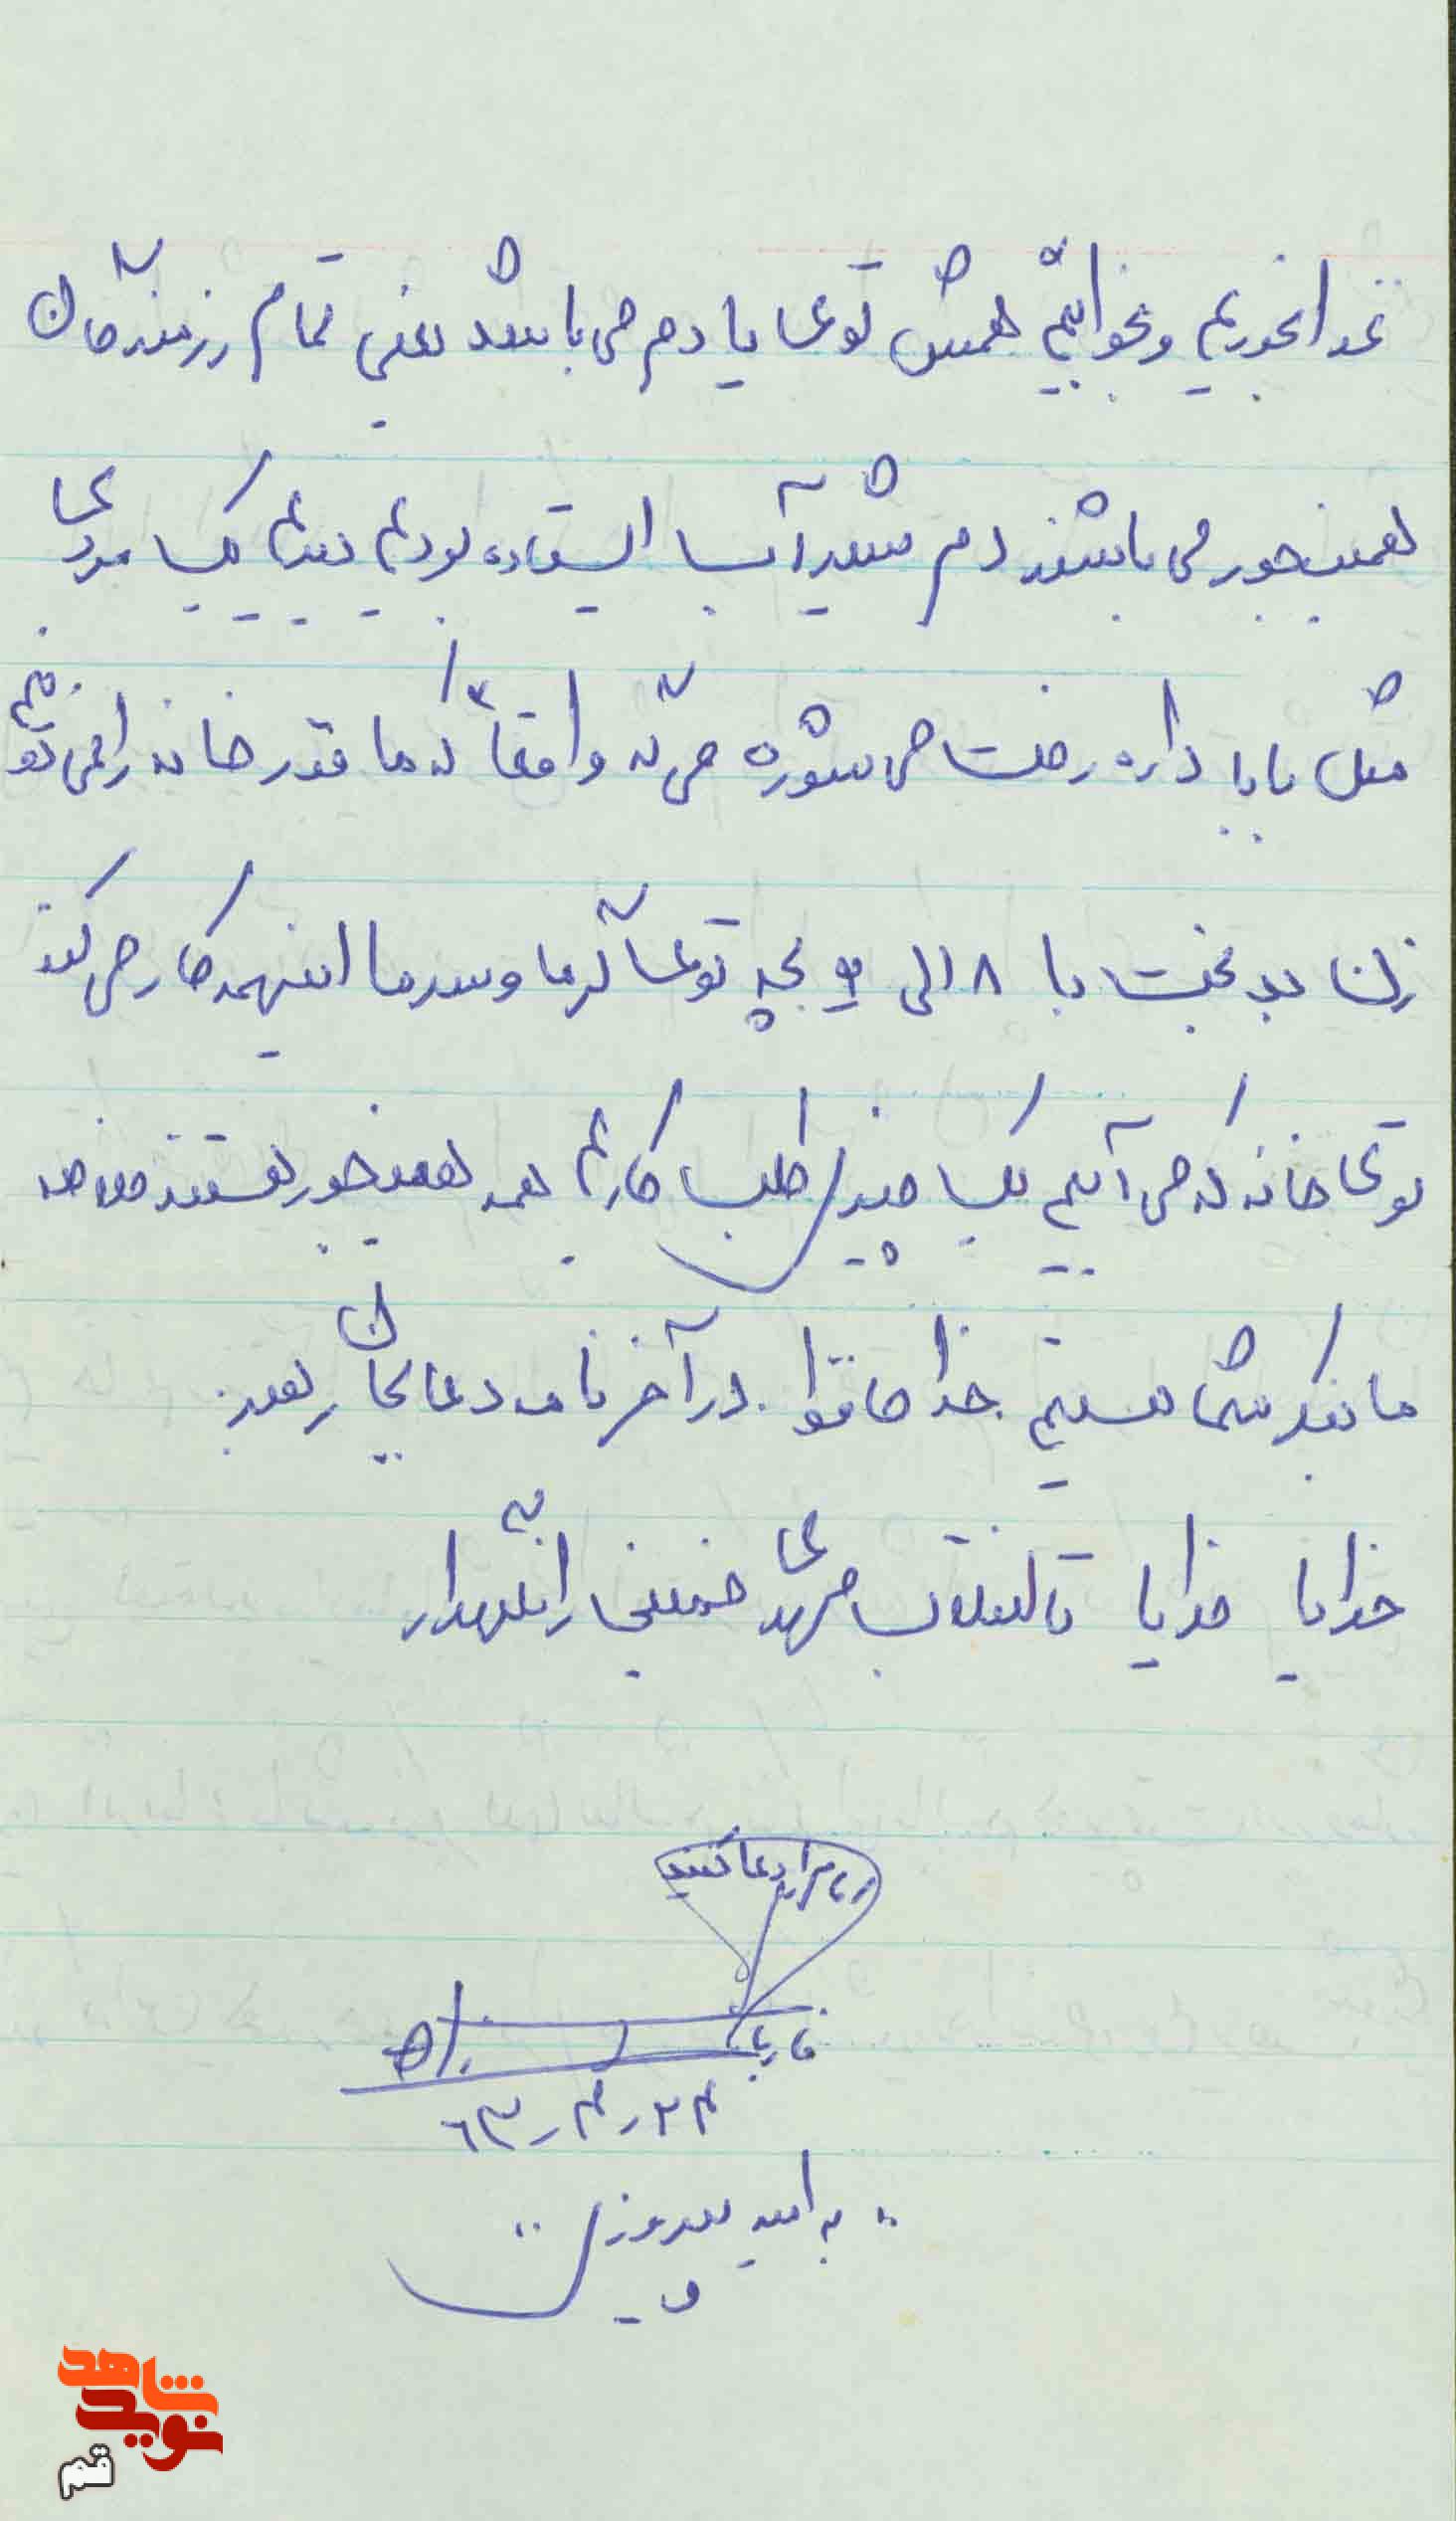 غذا بخوریم و بخوابیم همش توی یادم می باشد یعنی تمام رزمندگان
همینجور می باشند دم شیر آب ایستاده بودیم دیدیم یک مردی
مثل بابا داره رخت می شوره می گه واقعاً که ما قدر خانه را نمی دونیم
زن بدبخت با ۸ الی ۹ بچه توی گرما و سرما اینهمه کار می کند
توی خانه که می آییم یک چیزی طلب کاریم همه همینجور هستند
ما بفکر شما هستیم خدا حافظ . در آخر نامه دعا یمان
خدایا خدایا تا انقلاب مهدی خمینی را نگهدار
امام را دعا کنید
۲۴ ر ۴ ر ۶۳
" به امید پیروزی "
شاهد
نوید
قم